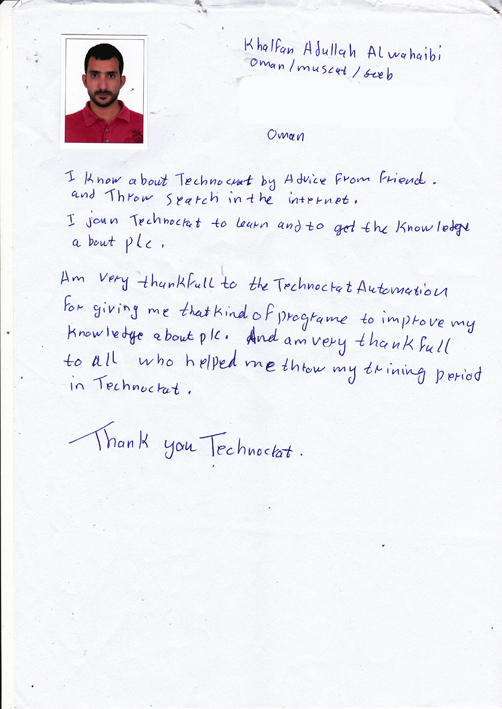 Khalfan Adullah Alwahaibi
Oman/muscat/seeb
Oman
I know about Technocrat by Advice from friend.
and Throw search in the internet.
I joun Technocrat to learn and to get the knowledge
about plc.
Am very thankfull to the Technocrat Automation
for giving me that kind of programe to improve my
knowledge about plc. And am very thankfull
to all who helped me throw my trining period
in Technocrat.
Thank you Technocrat.